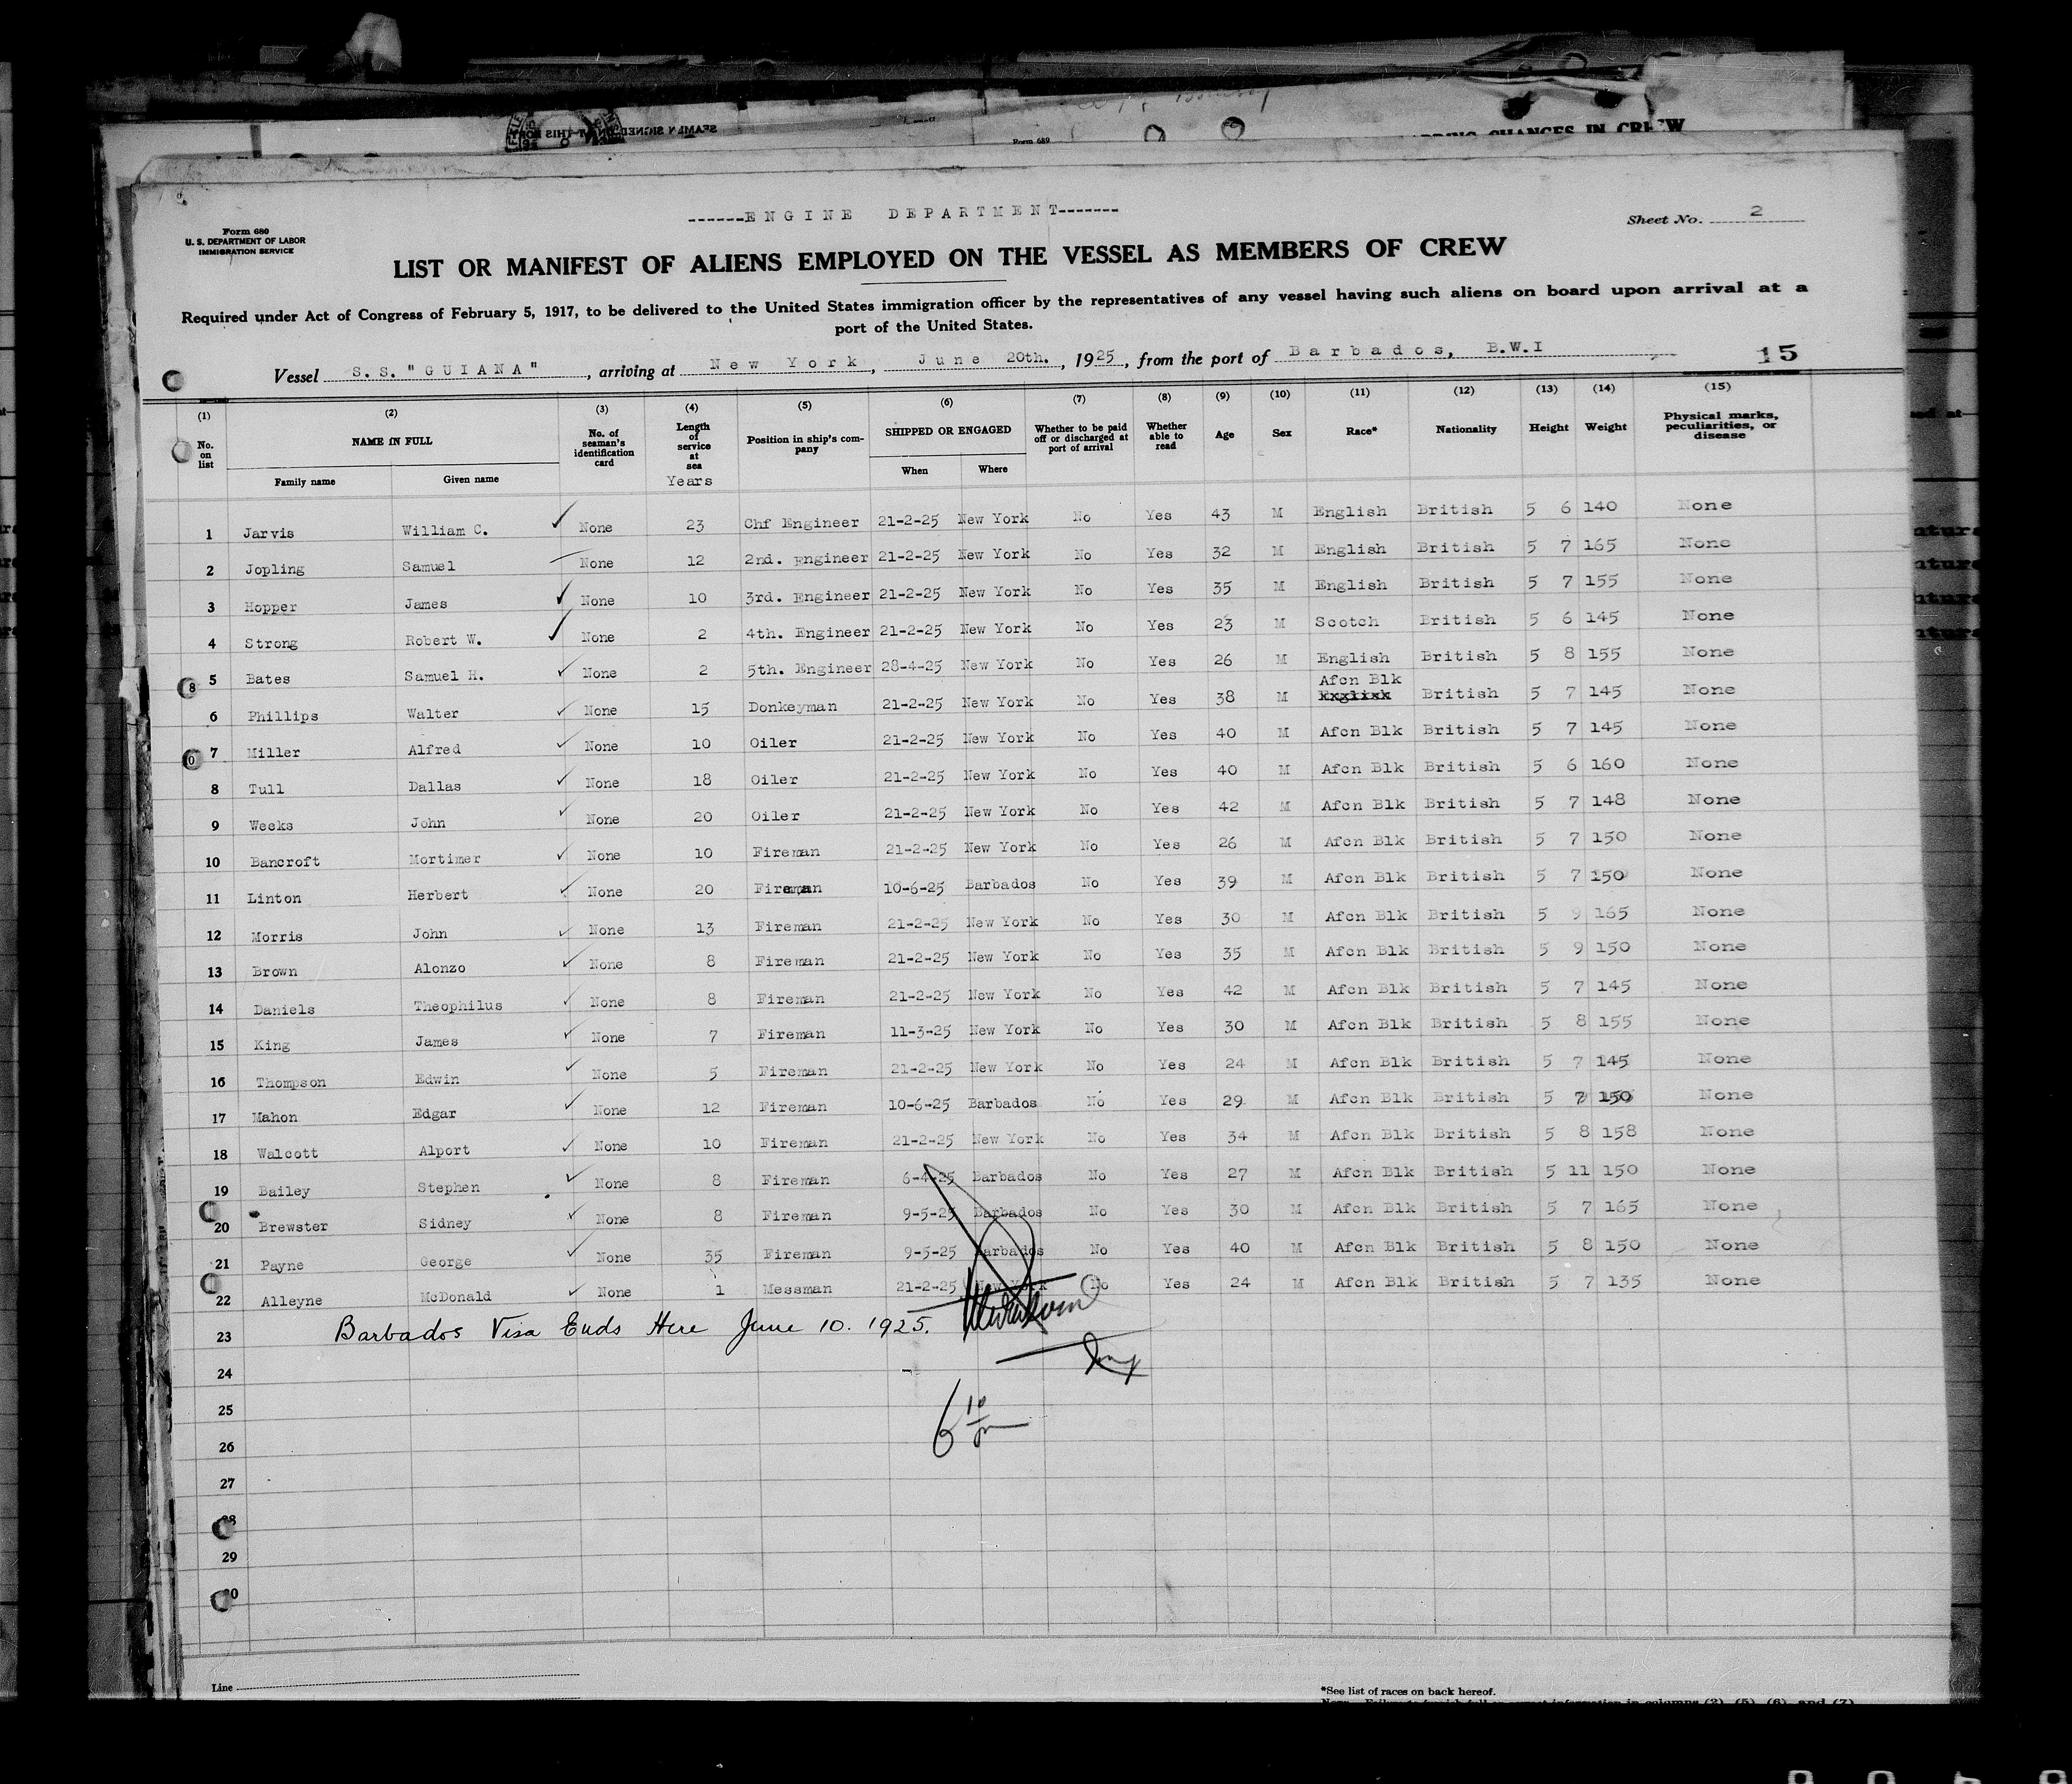 CHANGES IN CREW
Form 689
------ENGINE DEPARTMENT-------
Sheet No. 2
Form 680
U. S. DEPARTMENT OF LABOR
IMMIGRATION SERVICE
LIST OR MANIFEST OF ALIENS EMPLOYED ON THE VESSEL AS MEMBERS OF CREW
Required under Act of Congress of February 5, 1917, to be delivered to the United States immigration officer by the representatives of any vessel having such aliens on board upon arrival at a
port of the United States.
Vessel S.S. "GUIANA", arriving at New York, June 20th., 1925, from the port of Barbados, B.W.I
15
(1) (2) (3) (4) (5) (6) (7) (8) (9) (10) (11) (12) (13) (14) (15)
No. on list NAME IN FULL No. of seaman's identification card Length of service at sea Position in ship's company SHIPPED OR ENGAGED Whether to be paid off or discharged at port of arrival Whether able to read Age Sex Race* Nationality Height Weight Physical marks, peculiarities, or disease
Family name Given name Years When Where
1 Jarvis William C. None 23 Chf Engineer 21-2-25 New York No Yes 43 M English British 5 6 140 None
2 Jopling Samuel None 12 2nd. Engineer 21-2-25 New York No Yes 32 M English British 5 7 165 None
3 Hopper James None 10 3rd. Engineer 21-2-25 New York No Yes 35 M English British 5 7 155 None
4 Strong Robert W. None 2 4th. Engineer 21-2-25 New York No Yes 23 M Scotch British 5 6 145 None
5 Bates Samuel H. None 2 5th. Engineer 28-4-25 New York No Yes 26 M English British 5 8 155 None
6 Phillips Walter None 15 Donkeyman 21-2-25 New York No Yes 38 M Afcn Blk British 5 7 145 None
7 Miller Alfred None 10 Oiler 21-2-25 New York No Yes 40 M Afcn Blk British 5 7 145 None
8 Tull Dallas None 18 Oiler 21-2-25 New York No Yes 40 M Afcn Blk British 5 6 160 None
9 Weeks John None 20 Oiler 21-2-25 New York No Yes 42 M Afcn Blk British 5 7 148 None
10 Bancroft Mortimer None 10 Fireman 21-2-25 New York No Yes 26 M Afcn Blk British 5 7 150 None
11 Linton Herbert None 20 Fireman 10-6-25 Barbados No Yes 39 M Afcn Blk British 5 7 150 None
12 Morris John None 13 Fireman 21-2-25 New York No Yes 30 M Afcn Blk British 5 9 165 None
13 Brown Alonzo None 8 Fireman 21-2-25 New York No Yes 35 M Afcn Blk British 5 9 150 None
14 Daniels Theophilus None 8 Fireman 21-2-25 New York No Yes 42 M Afcn Blk British 5 7 145 None
15 King James None 7 Fireman 11-3-25 New York No Yes 30 M Afcn Blk British 5 8 155 None
16 Thompson Edwin None 5 Fireman 21-2-25 New York No Yes 24 M Afcn Blk British 5 7 145 None
17 Mahon Edgar None 12 Fireman 10-6-25 Barbados No Yes 29 M Afcn Blk British 5 7 150 None
18 Walcott Alport None 10 Fireman 21-2-25 New York No Yes 34 M Afcn Blk British 5 8 158 None
19 Bailey Stephen None 8 Fireman 6-4-25 Barbados No Yes 27 M Afcn Blk British 5 11 150 None
20 Brewster Sidney None 8 Fireman 9-5-25 Barbados No Yes 30 M Afcn Blk British 5 7 165 None
21 Payne George None 35 Fireman 9-5-25 Barbados No Yes 40 M Afcn Blk British 5 8 150 None
22 Alleyne McDonald None 1 Messman 21-2-25 New York No Yes 24 M Afcn Blk British 5 7 135 None
23 Barbados Visa Ends Here June 10. 1925.
24
25
26
27
29
Line
*See list of races on back hereof.